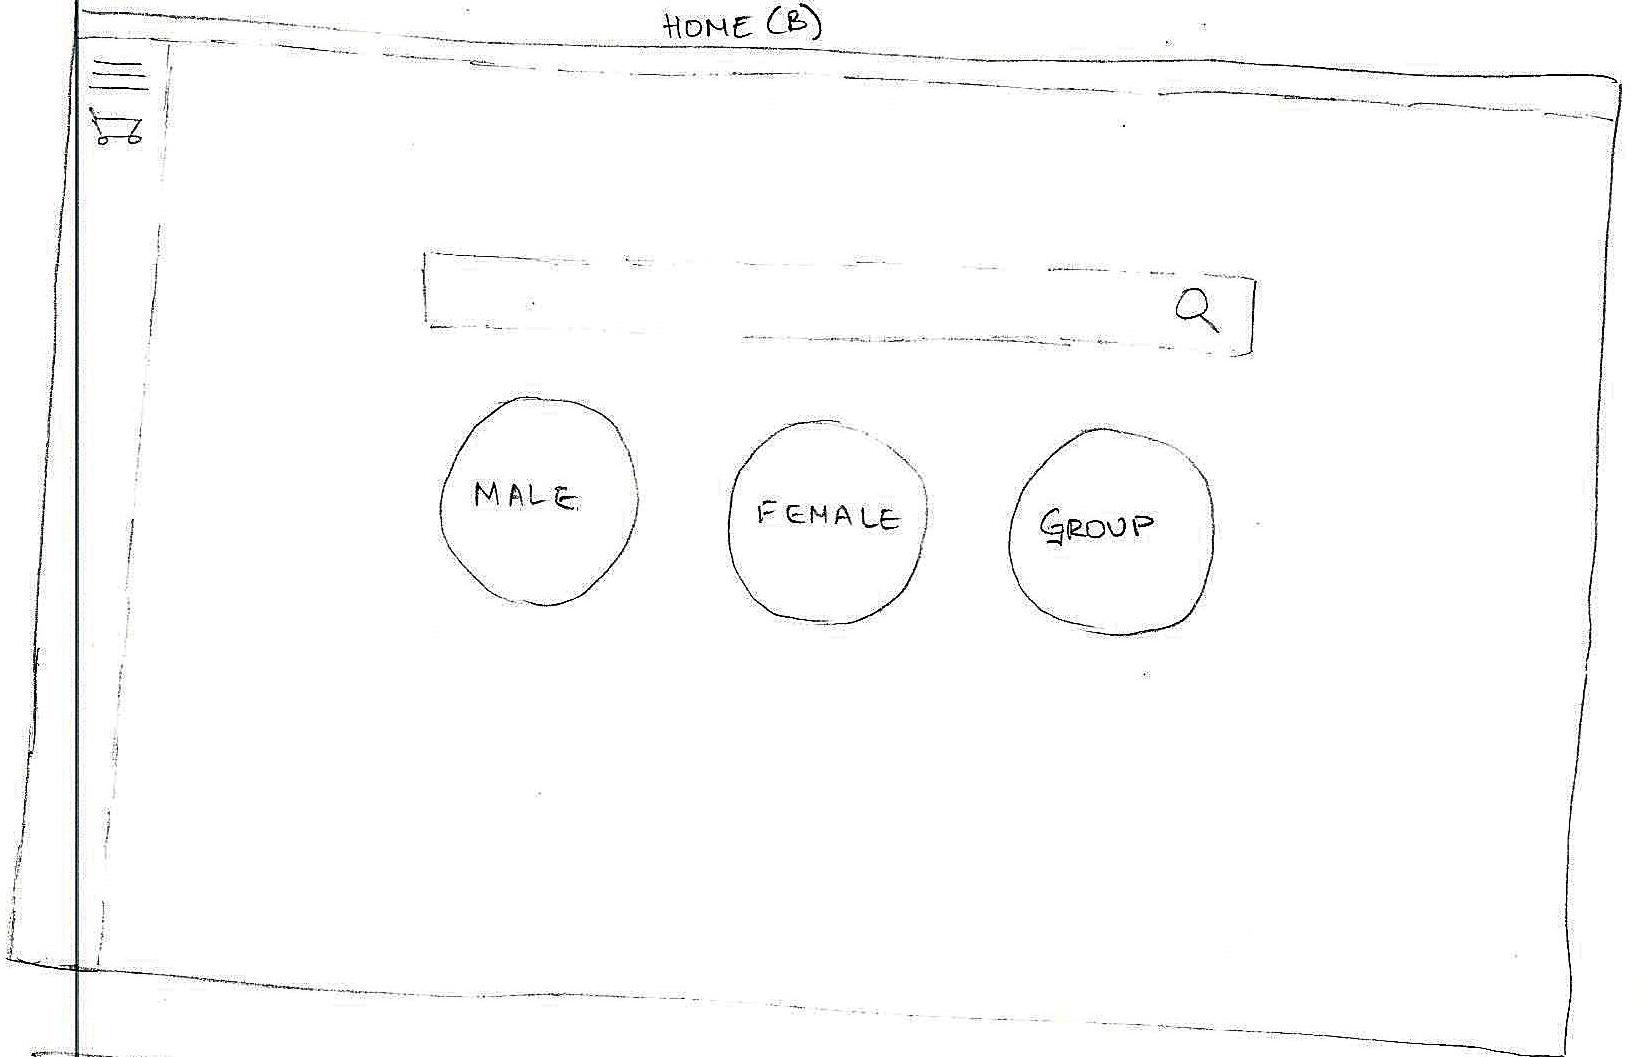 HOME (B)
MALE
FEMALE
GROUP